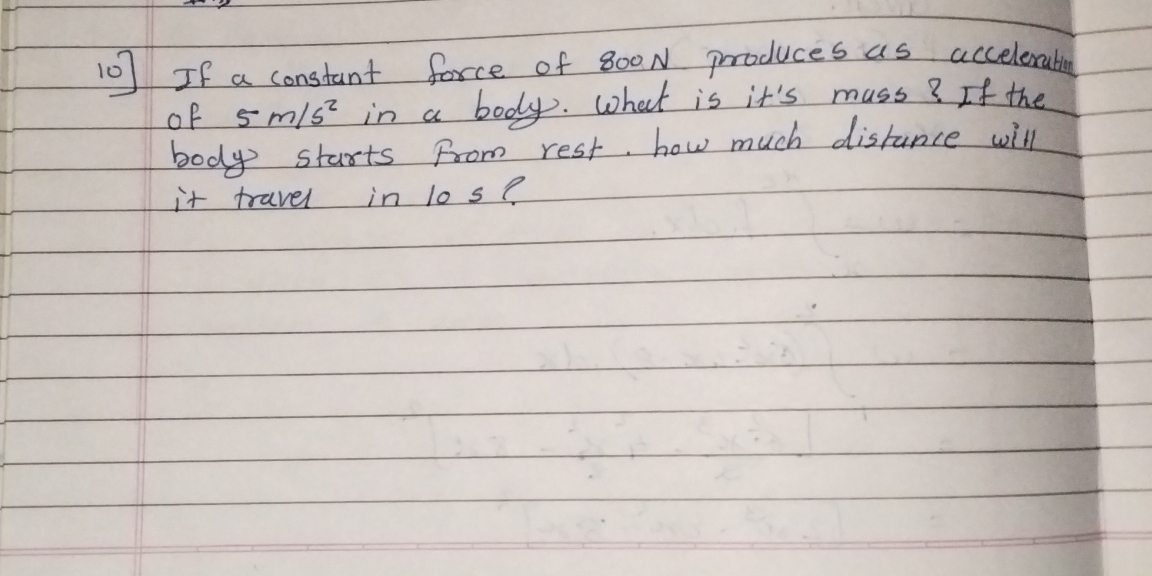 10] If a constant force of 800N produces as acceleration
of 5 m/s² in a body. What is it's mass ? If the
body starts From rest. how much distance will
it travel in 10 s ?